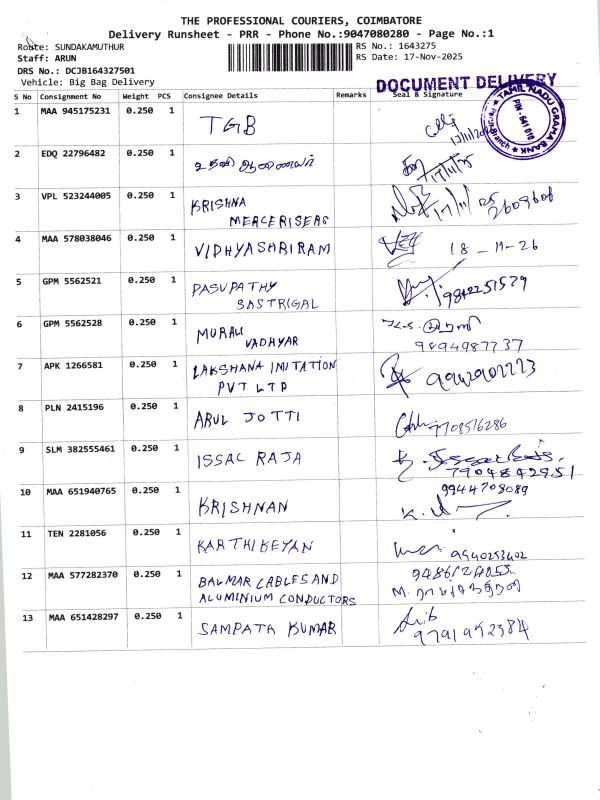 THE PROFESSIONAL COURIERS, COIMBATORE
Delivery Runsheet - PRR - Phone No.:9047080280 - Page No.:1
Route: SUNDAKAMUTHUR RS No.: 1643275
Staff: ARUN RS Date: 17-Nov-2025
DRS No.: DCJB164327501
Vehicle: Big Bag Delivery
DOCUMENT DELIVERY
S No Consignment No Weight PCS Consignee Details Remarks Seal & Signature
TAMIL NADU GRAMA BANK
PIN - 641 010
Branch
1 MAA 945175231 0.250 1 TGB
2 EDQ 22796482 0.250 1 உதவி ஆணையர் 17/11/25
3 VPL 523244005 0.250 1 KRISHNA MERCERISERS 17/11/25
2609608
4 MAA 578038046 0.250 1 VIDHYASHRIRAM 18-11-26
5 GPM 5562521 0.250 1 PASUPATHY SASTRIGAL 9842251579
6 GPM 5562528 0.250 1 MURALI VADHYAR
9894987737
7 APK 1266581 0.250 1 LAKSHANA IMITATION PVT LTD
8 PLN 2415196 0.250 1 ARUL JOTTI 7708516286
9 SLM 382555461 0.250 1 ISSAC RAJA
7904842951
10 MAA 651940765 0.250 1 KRISHNAN 9944708089
11 TEN 2281056 0.250 1 KARTHIKEYAN 9940253402
12 MAA 577282370 0.250 1 BALMAR CABLES AND ALUMINIUM CONDUCTORS
13 MAA 651428297 0.250 1 SAMPATH KUMAR
9791952384